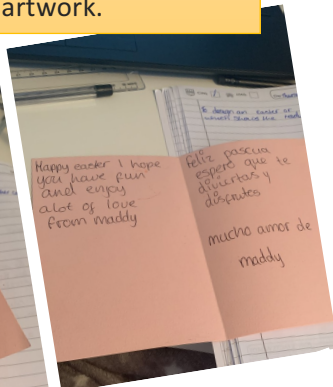 artwork.
Happy easter I hope
you have fun
and enjoy
alot of love
from maddy
feliz pascua
espero que te
diviertas y
disfrutes
mucho amor de
maddy